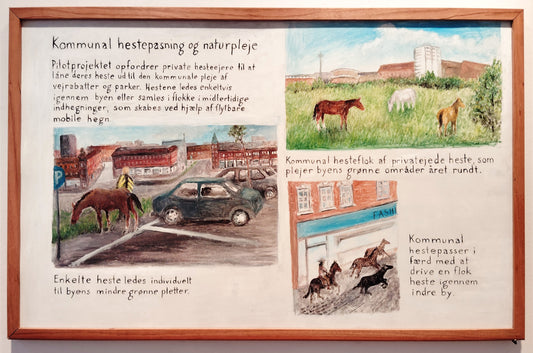 Kommunal hestepasning og naturpleje
Pilotprojektet opfordrer private hesteejere til at
låne deres heste ud til den kommunale pleje af
vejrabatter og parker. Hestene ledes enkeltvis
igennem byen eller samles i flokke i midlertidige
indhegninger, som skabes ved hjælp af flytbare
mobile hegn.
P
Enkelte heste ledes individuelt
til byens mindre grønne pletter.
Kommunal hesteflok af privatejede heste, som
plejer byens grønne områder året rundt.
FASH
Kommunal
hestepasser i
færd med at
drive en flok
heste igennem
indre by.